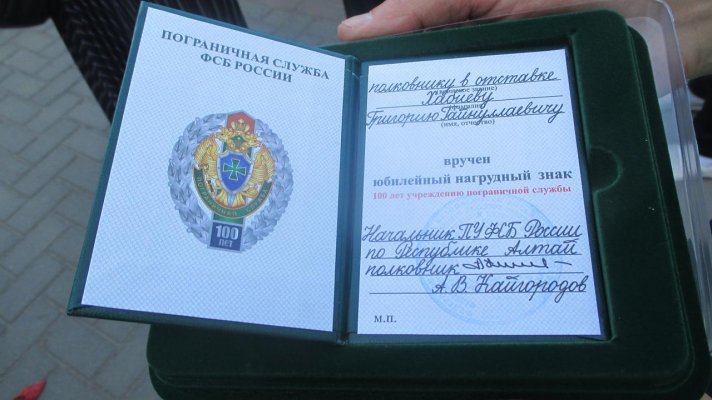 ПОГРАНИЧНАЯ СЛУЖБА
ФСБ РОССИИ
100
ЛЕТ
полковнику в отставке
(воинское звание)
Хабиеву
(фамилия)
Григорию Гайнуллаевичу
(имя, отчество)
вручен
юбилейный нагрудный знак
100 лет учреждению пограничной службы
Начальник ПУ ФСБ России
по Республике Алтай
полковник
А.В. Кайгородов
М.П.